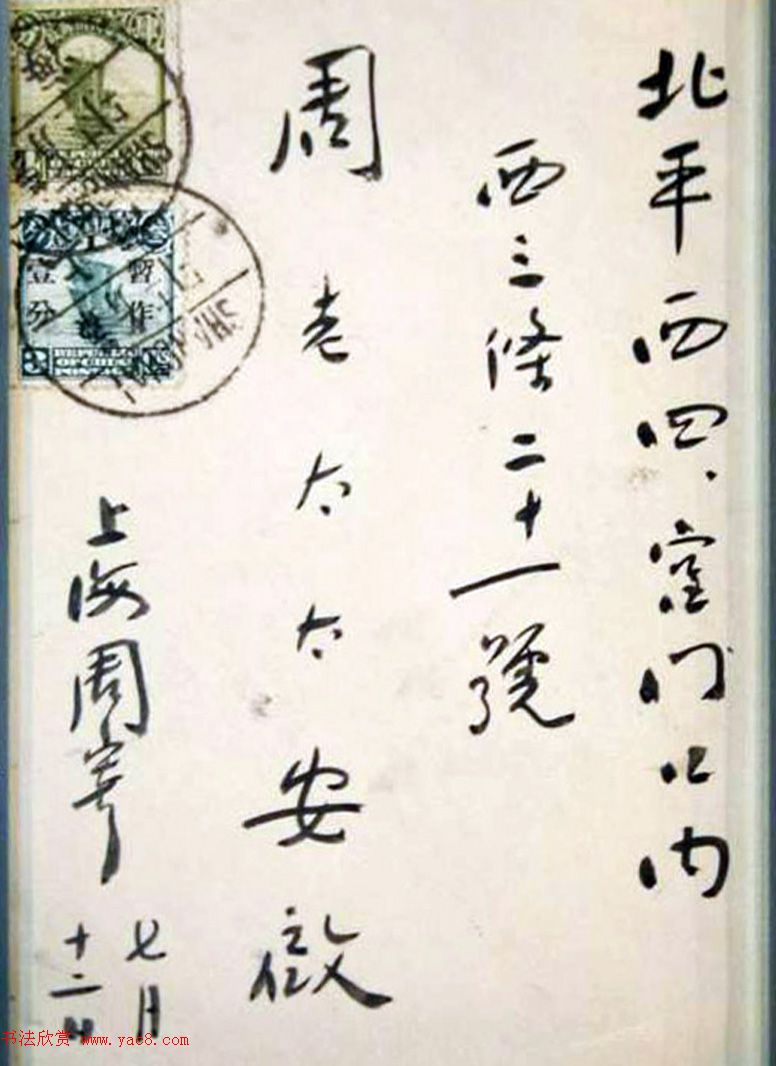 北平西四、宮門口内
西三條二十一號
周老太太安啟
上海周寄
七月
十二日
暫作
壹分
SHANGHAI
书法欣赏 www.yac8.com